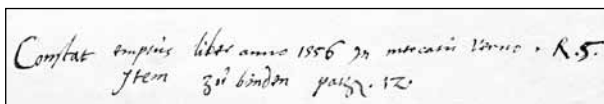 Constat emptus liber anno 1556 Jn mercatu Verno . R. 5.
Jtem zů binden patz. 12.